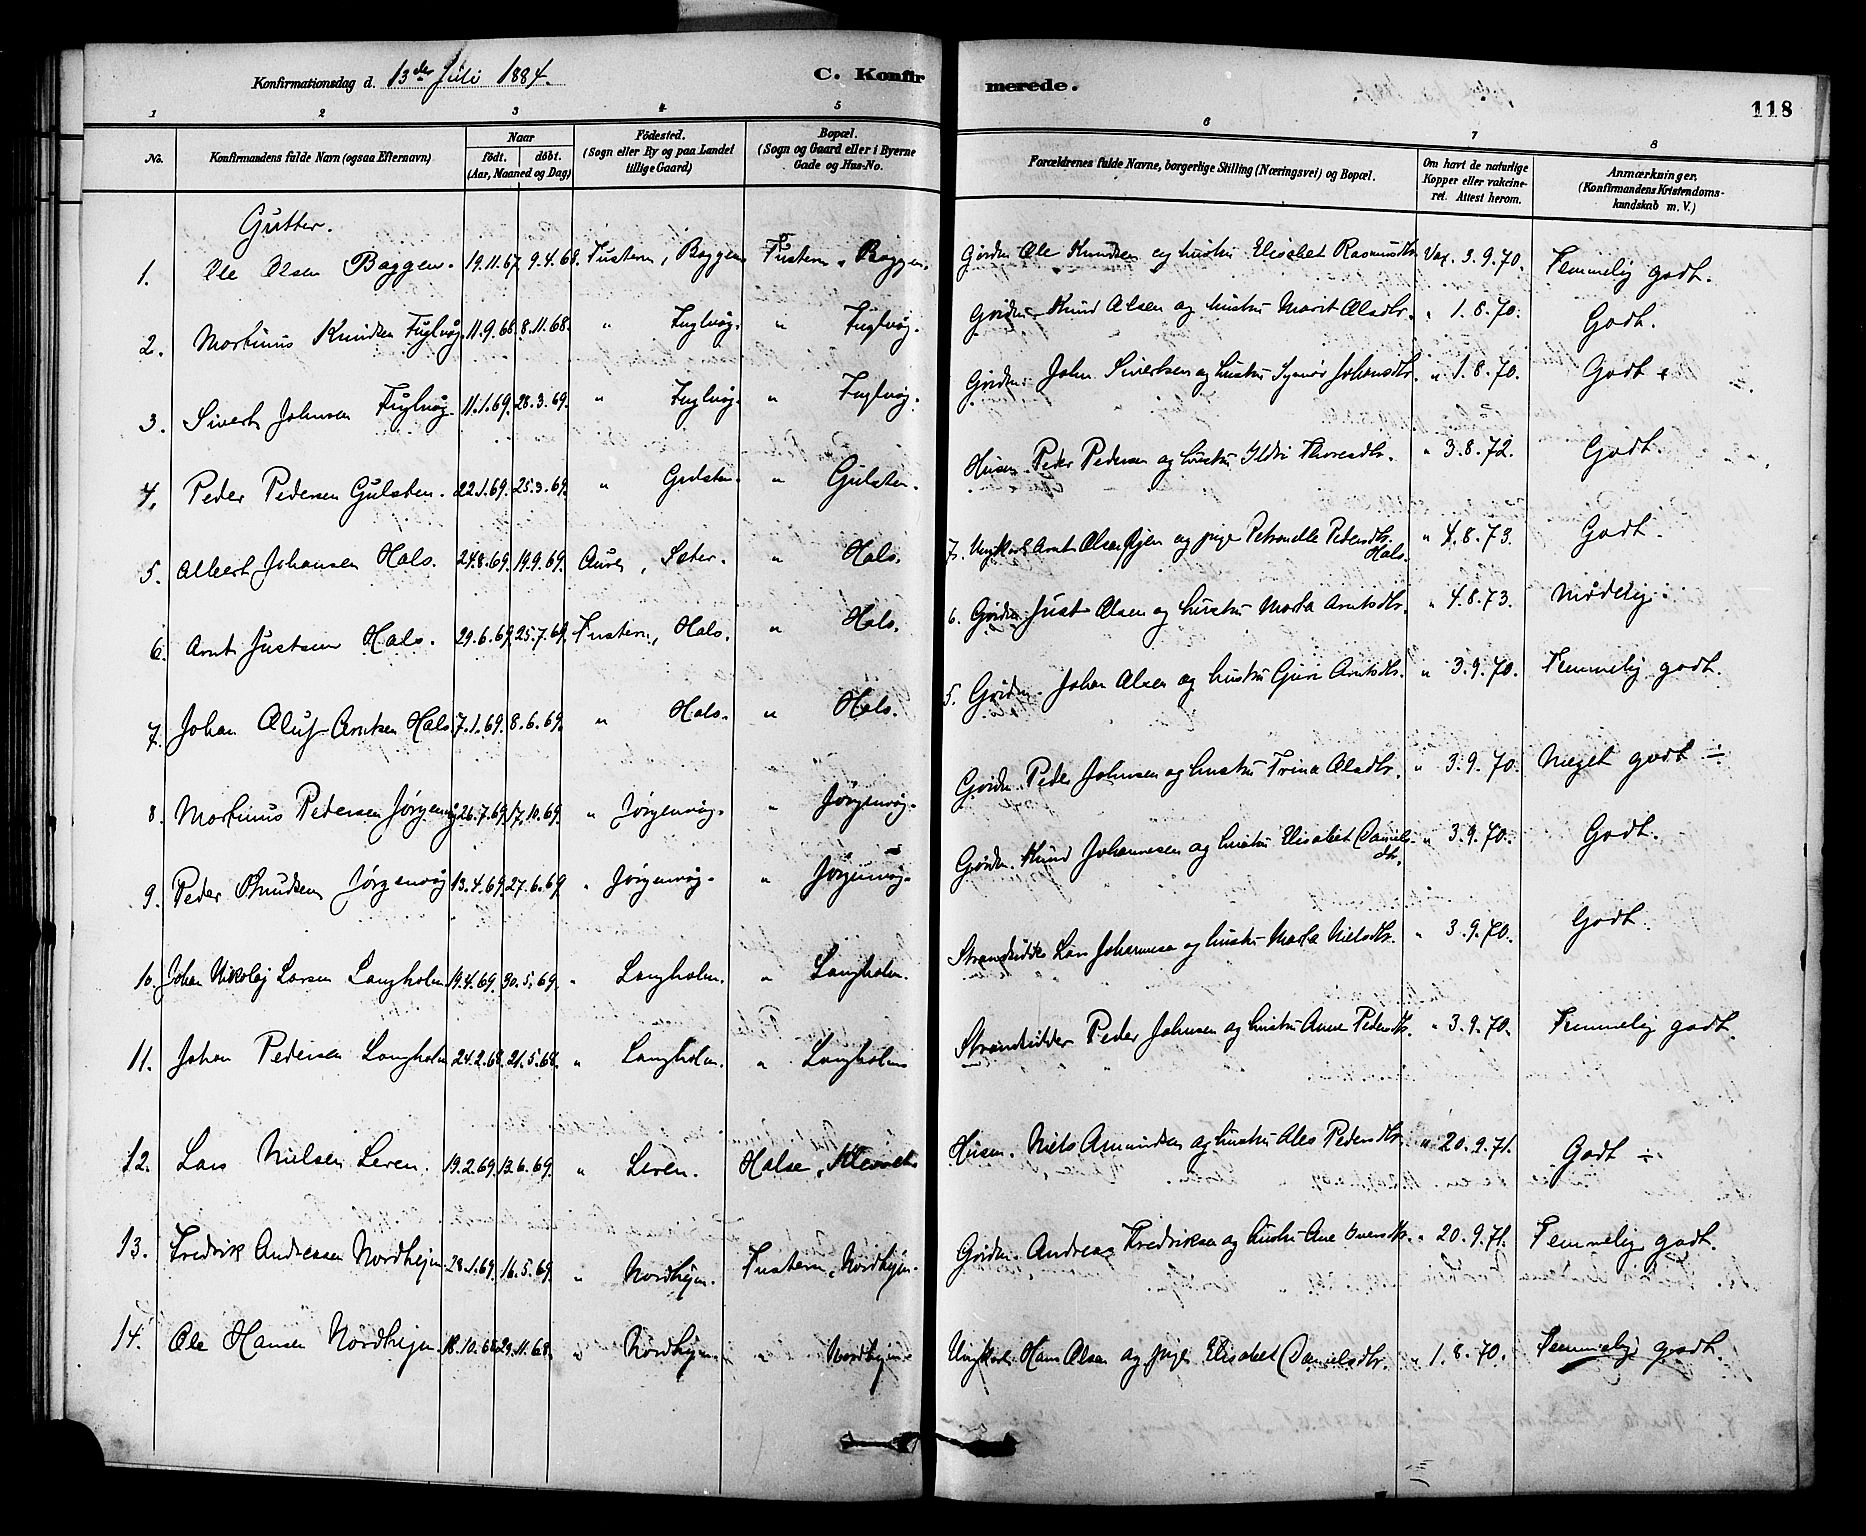 Konfirmationsdag d. 13de Juli 1884. C. Konfirmerede. 118
1 2 3 4 5 6 7 8
No. Konfirmandens fulde Navn (ogsaa Efternavn) Naar födt. döbt. (Aar, Maaned og Dag) Födested. (Sogn eller By og paa Landet tillige Gaard) Bopæl. (Sogn og Gaard eller i Byerne Gade og Hus-No. Forældrenes fulde Navne, borgerlige Stilling (Næringsvei) og Bopæl. Om havt de naturlige Kopper eller vakcineret. Attest herom. Anmærkninger. (Konfirmandens Kristendomskundskab m. V.)
Gutter.
1. Ole Olsen Baggen. 19.11.67. 9.4.68. Tustern, Baggen Tustern, Baggen. Gdrdr. Ole Knudsen og hustru Elisabet Rasmusdtr. Vax. 3.9.70. Temmelig godt.
2. Martinus Knudsen Fuglvåg 11.9.68. 8.11.68. " Fuglvåg. " Fuglvåg. Knud Olsen og hustru Marit Olsdtr. " 1.8.70. Godt.
3. Sivert Johnsen Fuglvåg. 11.1.69. 28.3.69. " Fuglvåg. " Fuglvåg. John Sivertsen og hustru Synnøv Johansdtr. " 1.8.70. Godt
4. Peder Pedersen Gulsten. 22.1.69. 25.3.69. " Gulsten. " Gulsten. Husm. Peder Pedersen og hustru Ildri Thoresdtr. " 3.8.72. Godt.
5. Albert Johansen Hals. 24.8.69. 19.9.69. Aure, Sæter. " Hals. 7. Ungkarl Arnt Olsen og pige Petronelle Pedersdtr. Hals. " 4.8.73. Godt.
6. Arnt Justsen Hals. 29.6.69. 25.7.69. Tustern, Hals. " Hals. 6. Just Olsen og hustru Marta Arntsdtr. " 4.8.73. Mådelig.
7. Johan Oluf Arntsen Hals. 7.1.69. 8.6.69. " Hals. " Hals. 5. Johan Olsen og hustru Guri Arntsdtr. " 3.9.70. Temmelig godt.
8. Martinus Pedersen Jørgenvåg 26.7.69. 17.10.69. " Jørgenvåg. " Jørgenvåg. Peder Johnsen og hustru Trina Olsdtr. " 3.9.70. Meget godt ÷
9. Peder Knudsen Jørgenvåg 13.4.69. 27.6.69 " Jørgenvåg. " Jørgenvåg. Knud Johannesen og hustru Elisabet Danielsdtr. " 3.9.70. Godt.
10. Johan Nikolaj Larsen Langholm 19.4.69. 30.5.69. " Langholm. " Langholm. Strandsidder Lars Johannesen og hustru Marta Nielsdtr. " 3.9.70. Godt.
11. Johan Pedersen Langholm 24.2.68. 21.5.68. " Langholm. " Langholm Strandsidder Peder Johnsen og hustru Anne Pedersdtr. " 3.9.70. Temmelig godt.
12. Lars Nielsen Leren. 19.2.69. 13.6.69. " Leren. Halse, Husm. Niels Amundsen og hustru Ales Pedersdtr. " 20.9.71. Godt ÷
13. Fredrik Andreasen Nordhejm. 28.1.69. 16.5.69. " Nordhejm. Tustern, Nordhejm. Andreas Fredriksen og hustru Ane Iversdtr. " 20.9.71. Temmelig godt.
14. Ole Hansen Nordhejm. 18.10.68. 29.11.68. " Nordhejm. " Nordhejm. Ungkarl Hans Olsen og pige Elisabet Danielsdtr. " 1.8.70. Temmelig godt.